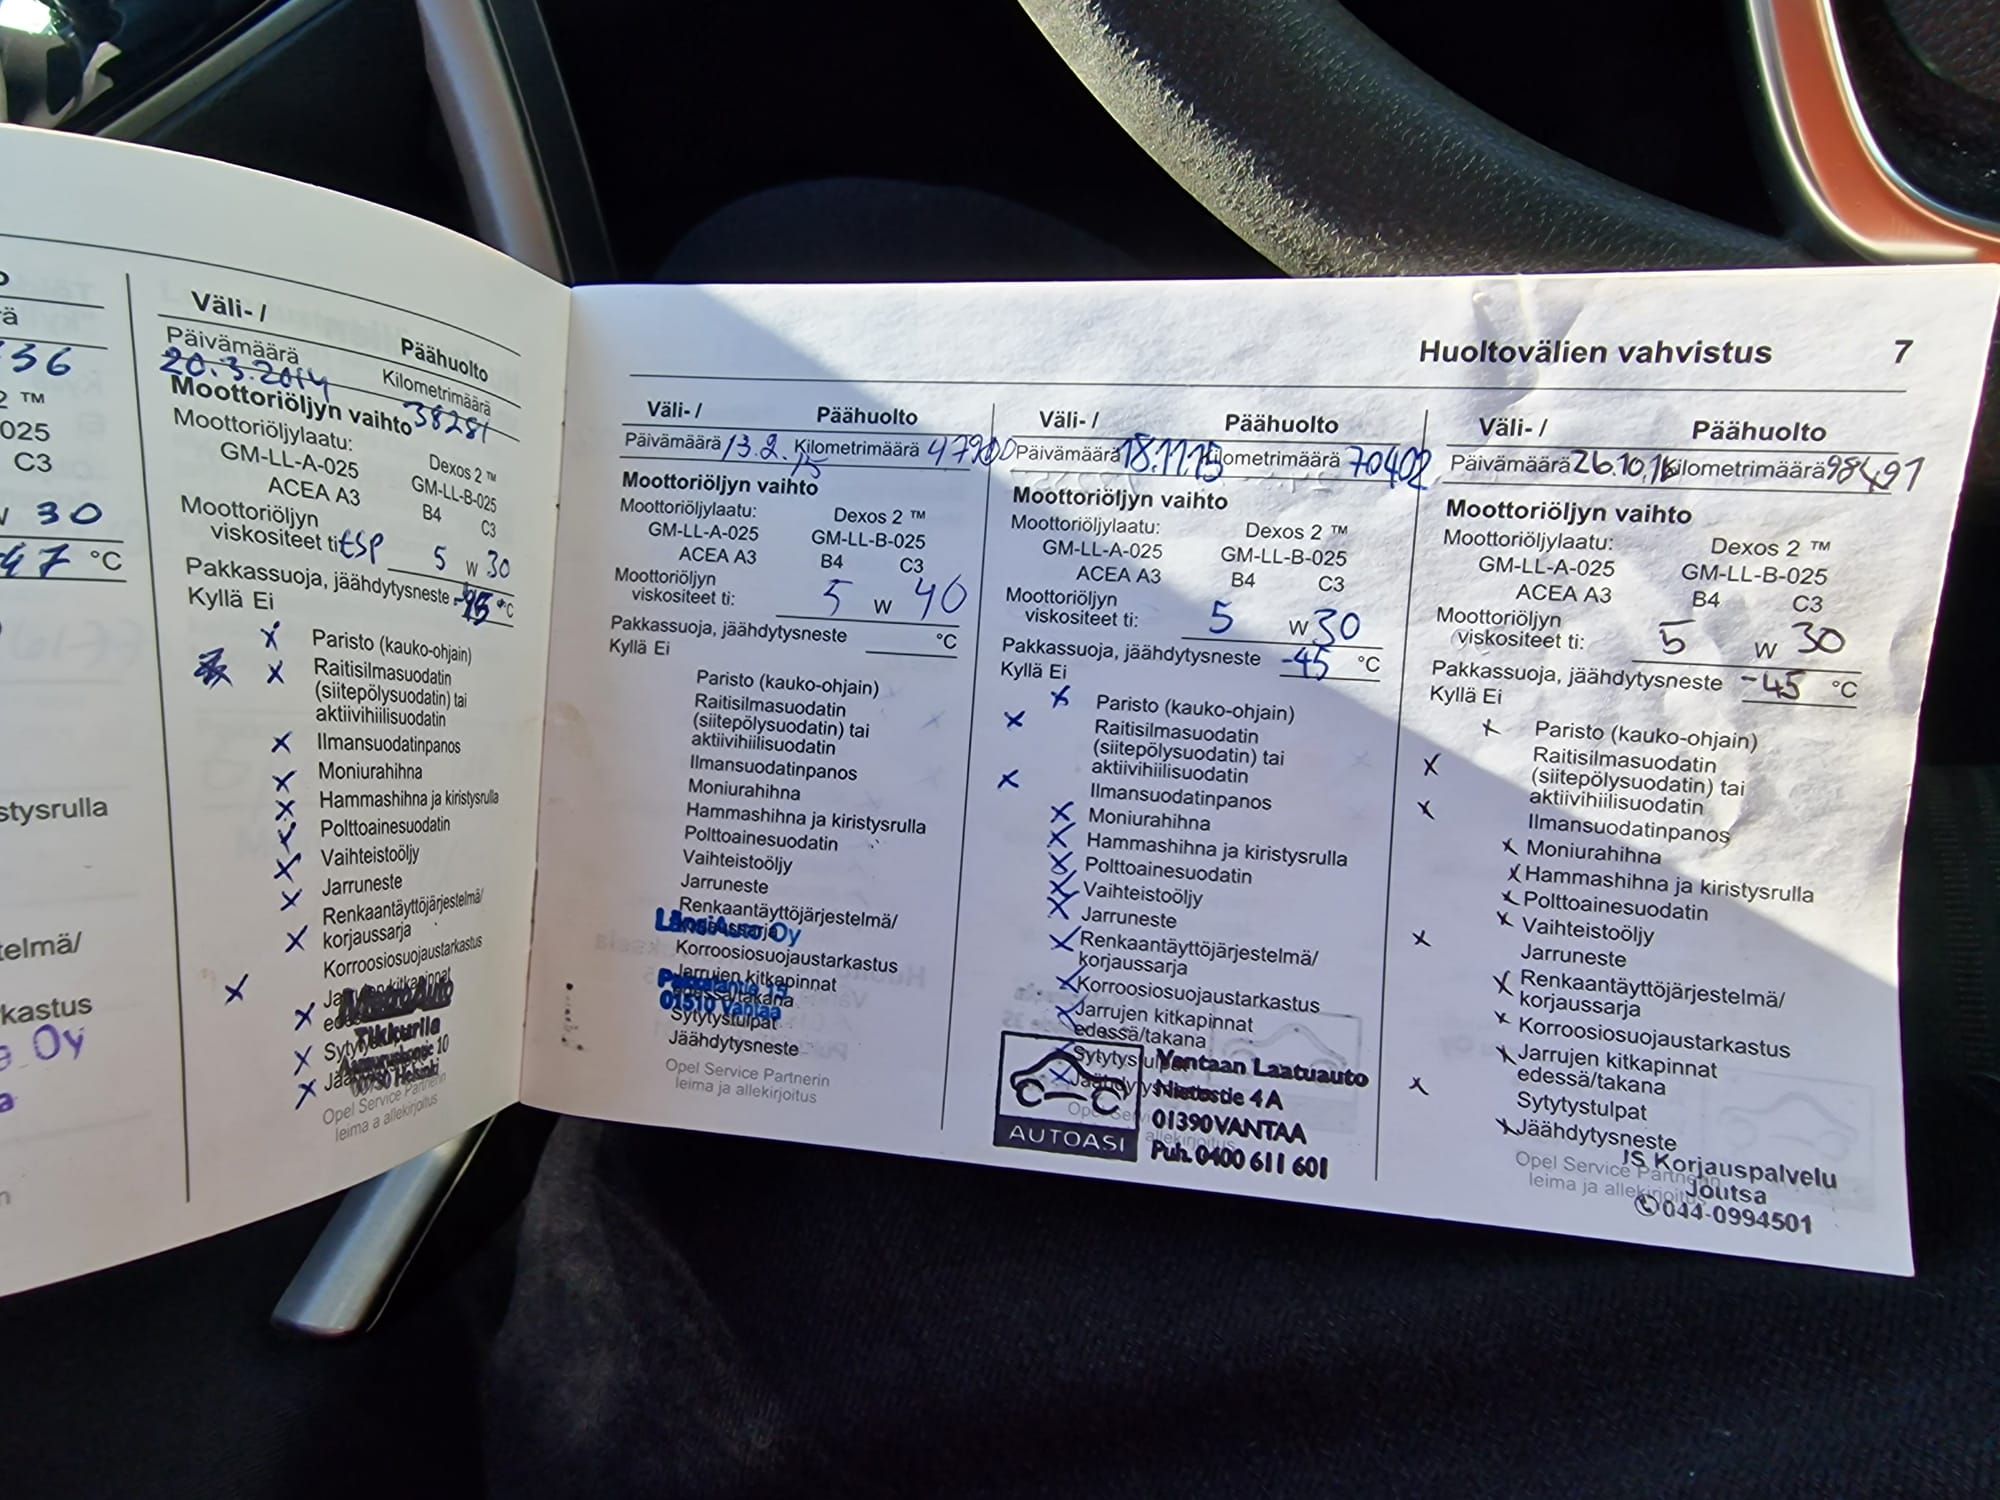 36
2 ™
025
C3
30
47 °C
stysrulla
telmä/
kastus
Oy
Väli- / Päähuolto
Päivämäärä Kilometrimäärä
20.3.2014 38281
Moottoriöljyn vaihto
Moottoriöljylaatu: Dexos 2 ™
GM-LL-A-025 GM-LL-B-025
ACEA A3 B4 C3
Moottoriöljyn
viskositeet ti: ESP 5 W 30
Pakkassuoja, jäähdytysneste °C
Kyllä Ei
x Paristo (kauko-ohjain)
x Raitisilmasuodatin
(siitepölysuodatin) tai
aktiivihiilisuodatin
x Ilmansuodatinpanos
x Moniurahihna
x Hammashihna ja kiristysrulla
x Polttoainesuodatin
x Vaihteistoöljy
x Jarruneste
x Renkaantäyttöjärjestelmä/
korjaussarja
x Korroosiosuojaustarkastus
x
x
x
Tikkurila
00750 Helsinki
Opel Service Partnerin
leima a allekirjoitus
Huoltovälien vahvistus 7
Väli- / Päähuolto
Päivämäärä 13.2.15 Kilometrimäärä 47900
Moottoriöljyn vaihto
Moottoriöljylaatu: Dexos 2 ™
GM-LL-A-025 GM-LL-B-025
ACEA A3 B4 C3
Moottoriöljyn
viskositeet ti: 5 W 40
Pakkassuoja, jäähdytysneste °C
Kyllä Ei
Paristo (kauko-ohjain)
Raitisilmasuodatin
(siitepölysuodatin) tai
aktiivihiilisuodatin
Ilmansuodatinpanos
Moniurahihna
Hammashihna ja kiristysrulla
Polttoainesuodatin
Vaihteistoöljy
Jarruneste
Renkaantäyttöjärjestelmä/
LänsiAuto Oy
Korroosiosuojaustarkastus
Jarrujen kitkapinnat
edessä/takana
01510 Vantaa
Sytytystulpat
Jäähdytysneste
Opel Service Partnerin
leima ja allekirjoitus
Väli- / Päähuolto
Päivämäärä 18.11.15 Kilometrimäärä 70402
Moottoriöljyn vaihto
Moottoriöljylaatu: Dexos 2 ™
GM-LL-A-025 GM-LL-B-025
ACEA A3 B4 C3
Moottoriöljyn
viskositeet ti: 5 W 30
Pakkassuoja, jäähdytysneste -45 °C
Kyllä Ei
x Paristo (kauko-ohjain)
x Raitisilmasuodatin
(siitepölysuodatin) tai
aktiivihiilisuodatin
x Ilmansuodatinpanos
x Moniurahihna
x Hammashihna ja kiristysrulla
x Polttoainesuodatin
x Vaihteistoöljy
x Jarruneste
x Renkaantäyttöjärjestelmä/
korjaussarja
x Korroosiosuojaustarkastus
x Jarrujen kitkapinnat
edessä/takana
x Sytytystulpat
x Jäähdytysneste
Vantaan Laatuauto
Nietostie 4 A
01390 VANTAA
Puh. 0400 611 601
AUTOASI
Väli- / Päähuolto
Päivämäärä 26.10.16 Kilometrimäärä 98491
Moottoriöljyn vaihto
Moottoriöljylaatu: Dexos 2 ™
GM-LL-A-025 GM-LL-B-025
ACEA A3 B4 C3
Moottoriöljyn
viskositeet ti: 5 W 30
Pakkassuoja, jäähdytysneste -45 °C
Kyllä Ei
x Paristo (kauko-ohjain)
x Raitisilmasuodatin
(siitepölysuodatin) tai
aktiivihiilisuodatin
x Ilmansuodatinpanos
x Moniurahihna
x Hammashihna ja kiristysrulla
x Polttoainesuodatin
x Vaihteistoöljy
x Jarruneste
x Renkaantäyttöjärjestelmä/
korjaussarja
x Korroosiosuojaustarkastus
x Jarrujen kitkapinnat
edessä/takana
x Sytytystulpat
x Jäähdytysneste
Opel Service Partnerin
leima ja allekirjoitus
JS Korjauspalvelu
Joutsa
044-0994501